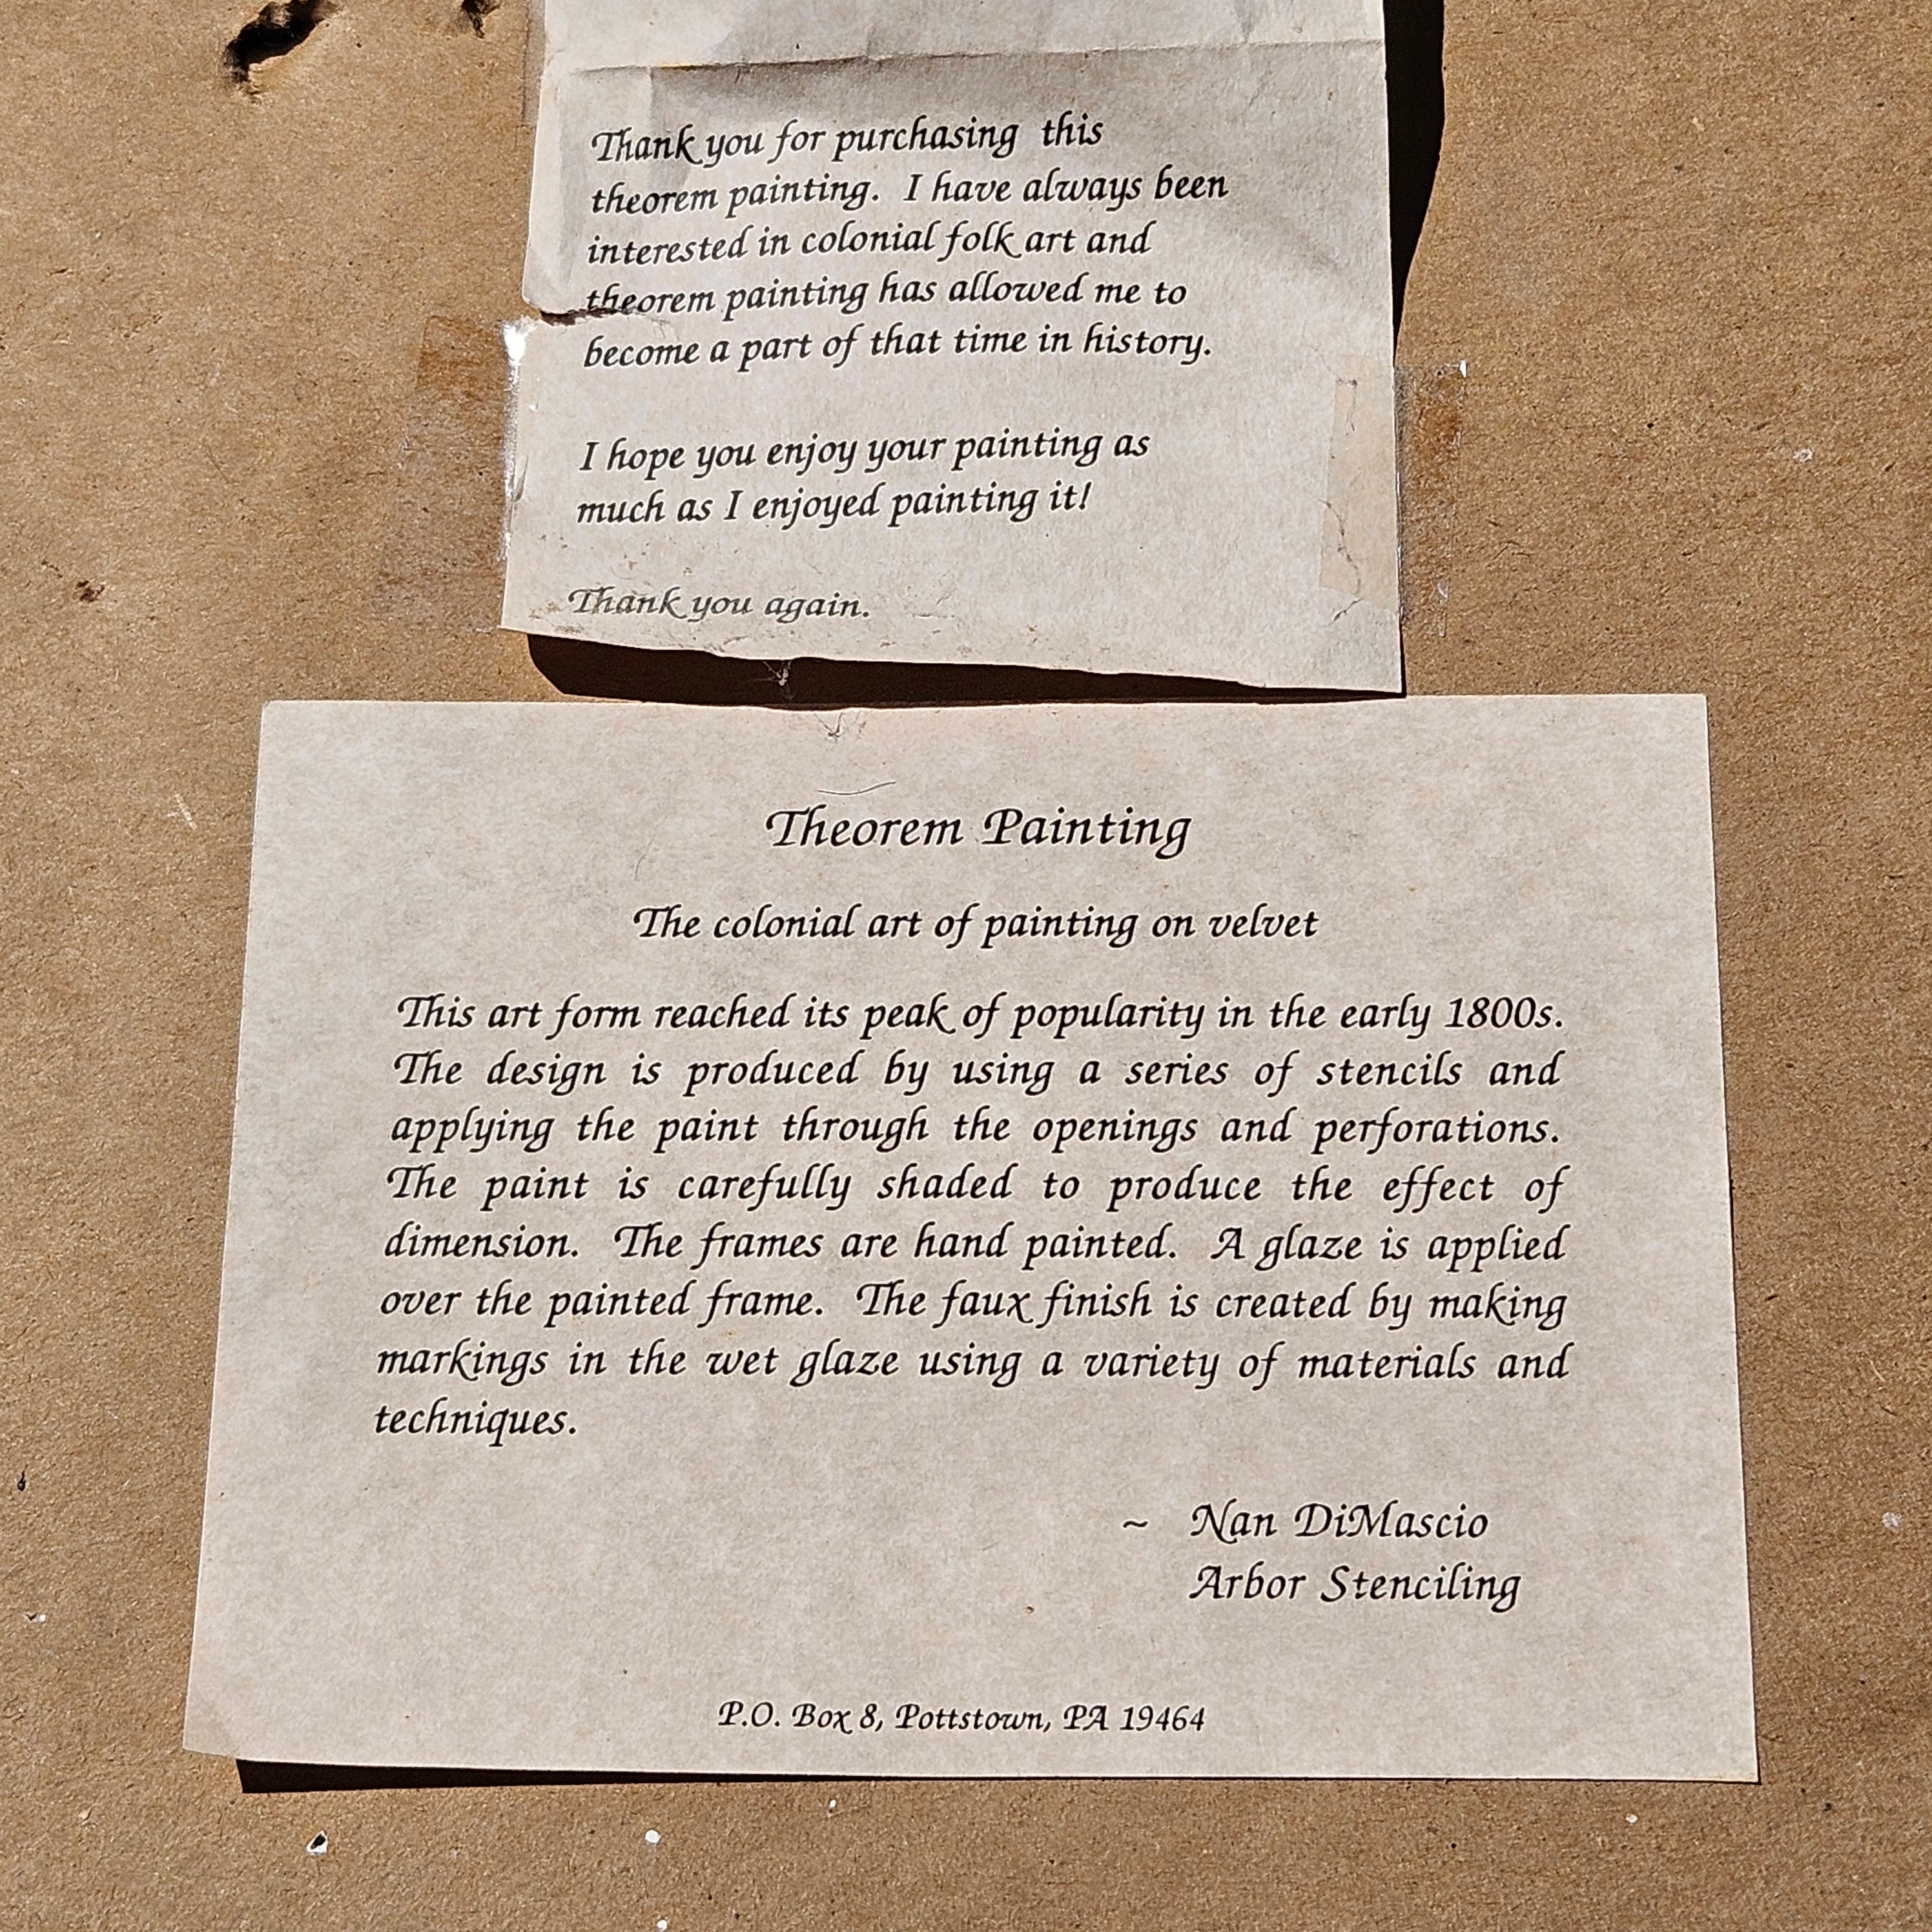 Thank you for purchasing this
theorem painting. I have always been
interested in colonial folk art and
theorem painting has allowed me to
become a part of that time in history.
I hope you enjoy your painting as
much as I enjoyed painting it!
Thank you again.
Theorem Painting
The colonial art of painting on velvet
This art form reached its peak of popularity in the early 1800s.
The design is produced by using a series of stencils and
applying the paint through the openings and perforations.
The paint is carefully shaded to produce the effect of
dimension. The frames are hand painted. A glaze is applied
over the painted frame. The faux finish is created by making
markings in the wet glaze using a variety of materials and
techniques.
~ Nan DiMascio
Arbor Stenciling
P.O. Box 8, Pottstown, PA 19464